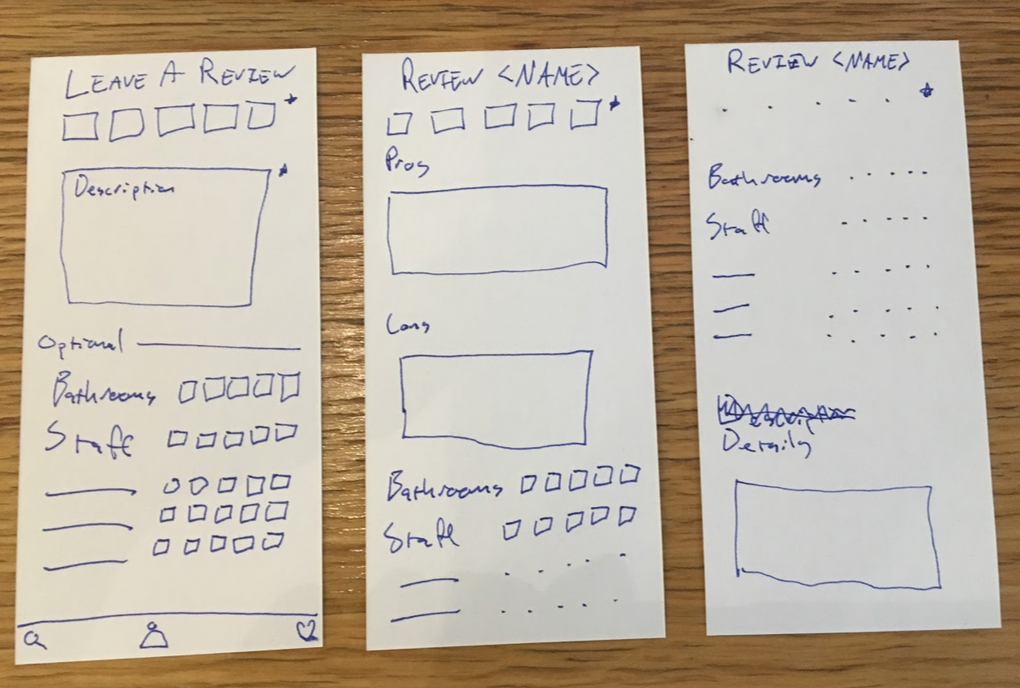 LEAVE A REVIEW
Description
Optional
Bathrooms
Staff
REVIEW <NAME>
Pros
Cons
Bathrooms
Staff
REVIEW <NAME>
Bathrooms
Staff
Description
Details